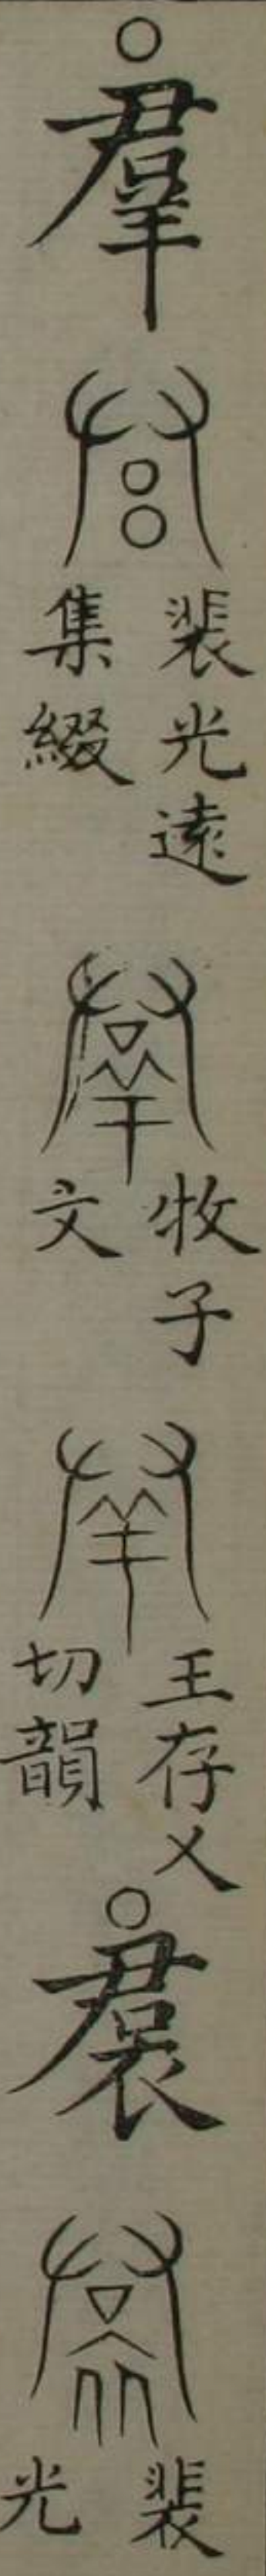 ○羣
裴光遠
集綴
牧子
文
王存乂
切韻
○裠
裴
光